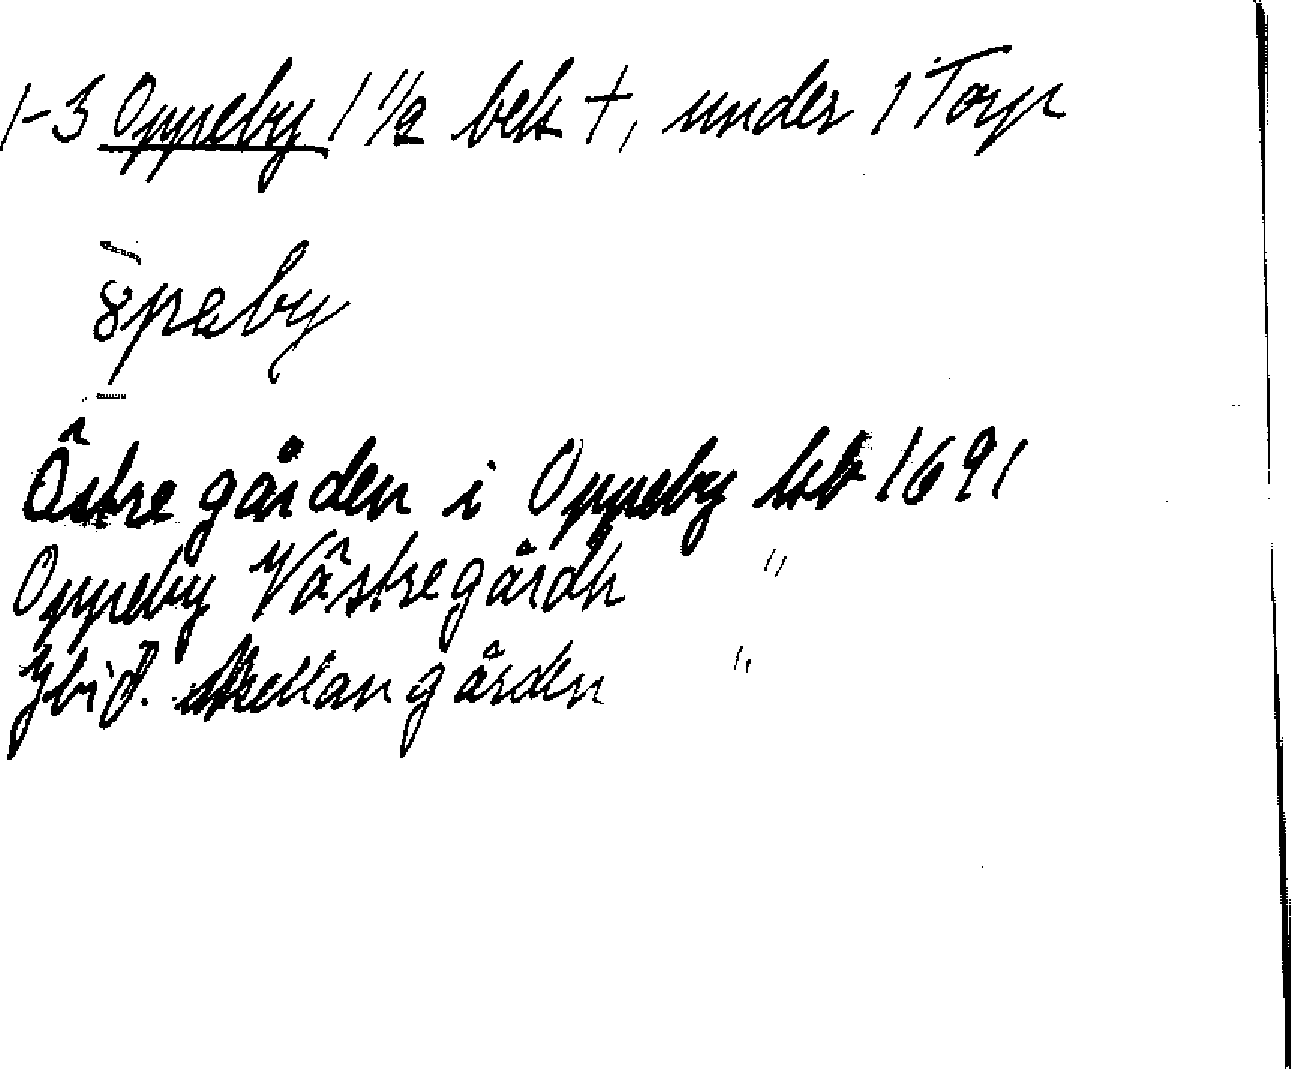 1-3 Oppeby 1 1/2 beb +, under 1 Torp
òpeby
Östregården i Oppeby lbb 1691
Oppeby Västregårdh "
Ybid. Mellangården "